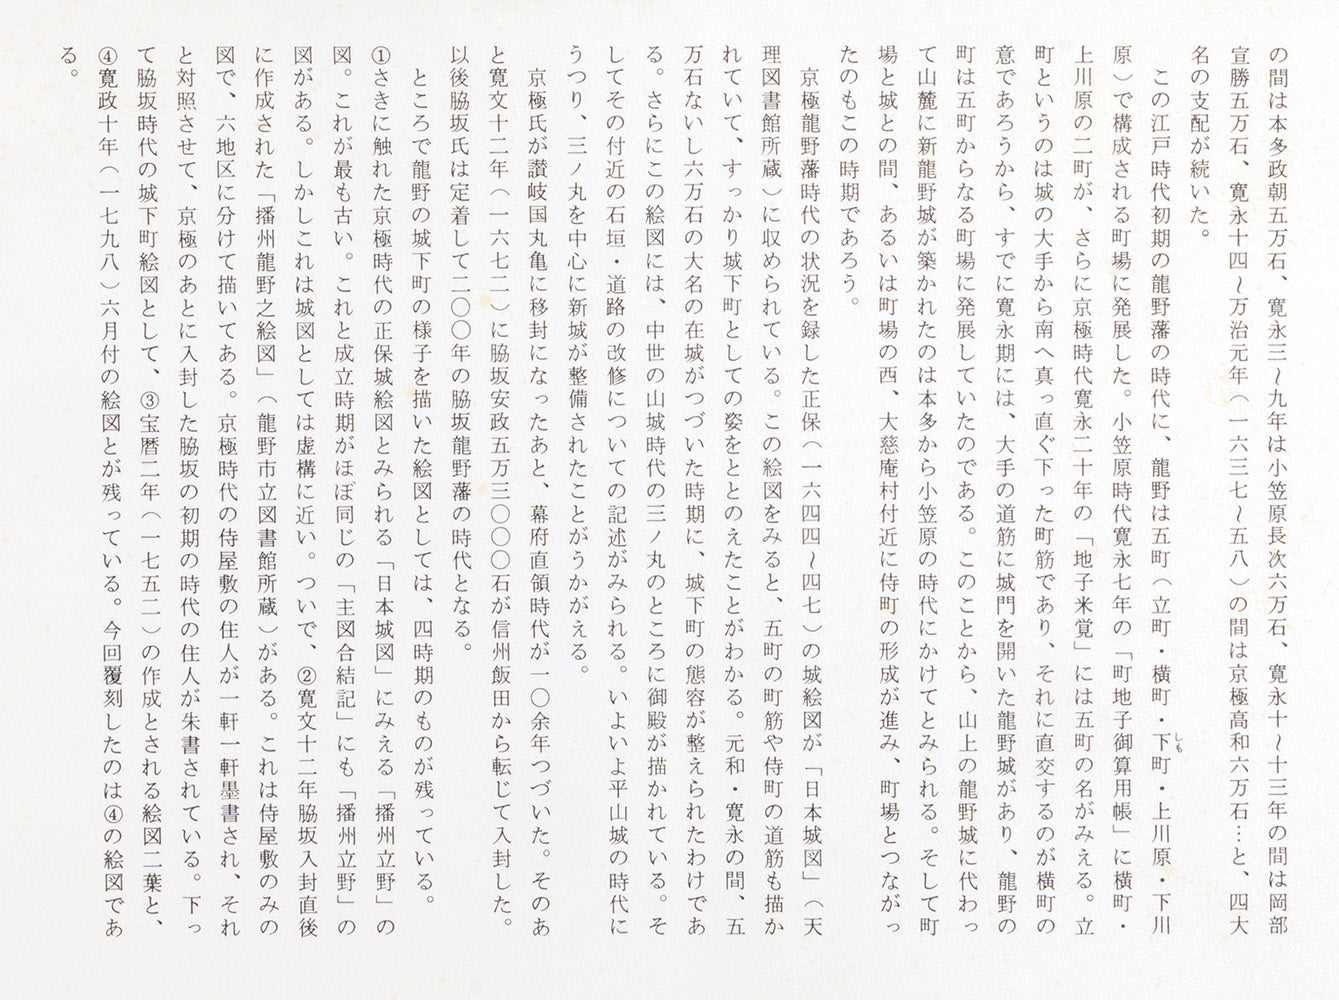 の間は本多政朝五万石、寛永三〜九年は小笠原長次六万石、寛永十〜十三年の間は岡部
宣勝五万石、寛永十四〜万治元年（一六三七〜五八）の間は京極高和六万石…と、四大
名の支配が続いた。
この江戸時代初期の龍野藩の時代に、龍野は五町（立町・横町・下町・上川原・下川
しも
原）で構成される町場に発展した。小笠原時代寛永七年の「町地子御算用帳」に横町・
上川原の二町が、さらに京極時代寛永二十年の「地子米覚」には五町の名がみえる。立
町というのは城の大手から南へ真っ直ぐ下った町筋であり、それに直交するのが横町の
意であろうから、すでに寛永期には、大手の道筋に城門を開いた龍野城があり、龍野の
町は五町からなる町場に発展していたのである。このことから、山上の龍野城に代わっ
て山麓に新龍野城が築かれたのは本多から小笠原の時代にかけてとみられる。そして町
場と城との間、あるいは町場の西、大慈庵村付近に侍町の形成が進み、町場とつながっ
たのもこの時期であろう。
京極龍野藩時代の状況を録した正保（一六四四〜四七）の城絵図が「日本城図」（天
理図書館所蔵）に収められている。この絵図をみると、五町の町筋や侍町の道筋も描か
れていて、すっかり城下町としての姿をととのえたことがわかる。元和・寛永の間、五
万石ないし六万石の大名の在城がつづいた時期に、城下町の態容が整えられたわけであ
る。さらにこの絵図には、中世の山城時代の三ノ丸のところに御殿が描かれている。そ
してその付近の石垣・道路の改修についての記述がみられる。いよいよ平山城の時代に
うつり、三ノ丸を中心に新城が整備されたことがうかがえる。
京極氏が讃岐国丸亀に移封になったあと、幕府直領時代が一〇余年つづいた。そのあ
と寛文十二年（一六七二）に脇坂安政五万三〇〇〇石が信州飯田から転じて入封した。
以後脇坂氏は定着して二〇〇年の脇坂龍野藩の時代となる。
ところで龍野の城下町の様子を描いた絵図としては、四時期のものが残っている。
①さきに触れた京極時代の正保城絵図とみられる「日本城図」にみえる「播州立野」の
図。これが最も古い。これと成立時期がほぼ同じの「主図合結記」にも「播州立野」の
図がある。しかしこれは城図としては虚構に近い。ついで、②寛文十二年脇坂入封直後
に作成された「播州龍野之絵図」（龍野市立図書館所蔵）がある。これは侍屋敷のみの
図で、六地区に分けて描いてある。京極時代の侍屋敷の住人が一軒一軒墨書され、それ
と対照させて、京極のあとに入封した脇坂の初期の時代の住人が朱書されている。下っ
て脇坂時代の城下町絵図として、③宝暦二年（一七五二）の作成とされる絵図二葉と、
④寛政十年（一七九八）六月付の絵図とが残っている。今回覆刻したのは④の絵図であ
る。